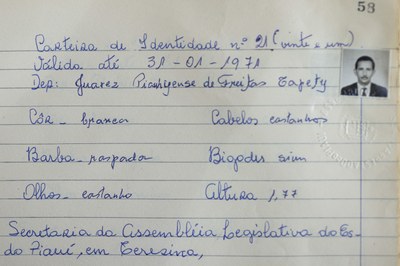 58
Carteira de Identidade nº 21 (vinte e um)
Válida até 31-01-1971
Dep: Juarez Piauhyense de Freitas Tapety
Côr - branca Cabelos castanhos
Barba - raspada Bigodes sim
Olhos - castanho Altura 1,77
Secretaria da Assembléia Legislativa do Es-
do Piauí, em Teresina,